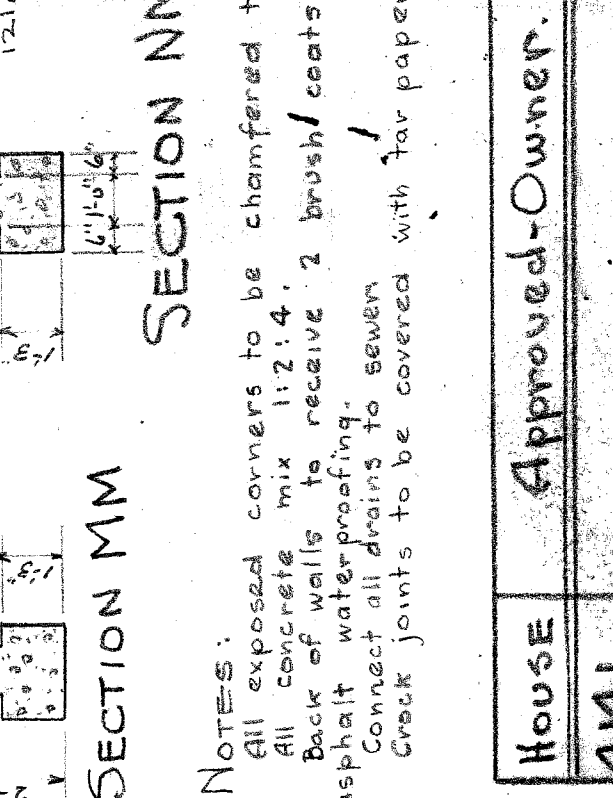 121
6" 1'-0" 6"
1'-3"
SECTION NN
1'-3"
SECTION MM
NOTES:
All exposed corners to be chamfered
All concrete mix 1:2:4.
Back of walls to receive 2 brush coats
asphalt waterproofing.
Connect all drains to sewer
Crock joints to be covered with tar paper
HOUSE
Approved-Owner.